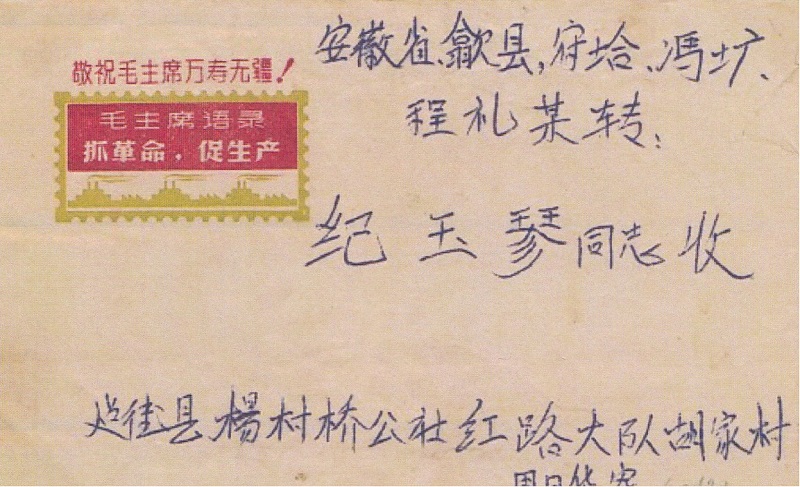 敬祝毛主席万寿无疆!
毛主席语录
抓革命，促生产
安徽省.歙县, 冯圹.
程礼某转:
纪玉琴同志收
县楊村桥公社红路大队胡家村